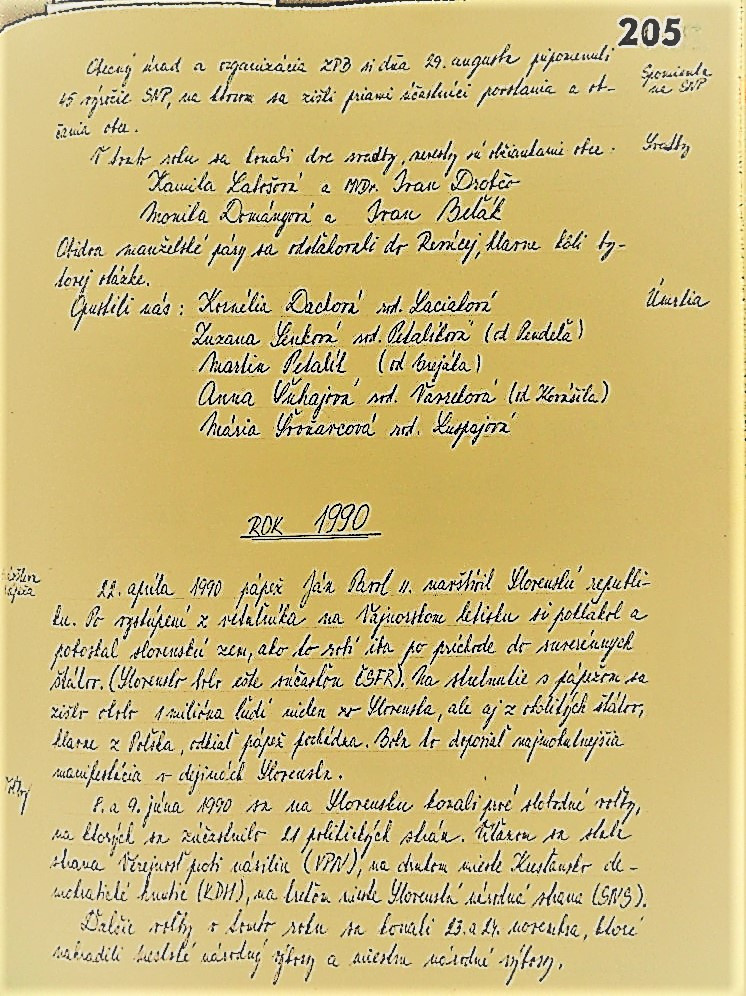 205
Obecný úrad a organizácia ZPB si dňa 29. augusta pripomenuli
Spomienka
na SNP
45 výročie SNP, na ktorom sa zišli priami účastníci povstania a ob-
čania obce.
V tomto roku sa konali dve svadby, nevesty sú občiankami obce.
Svadby
Kamila Latošová a MVDr. Ivan Drobčo
Monika Domángová a Ivan Beťák
Obidva manželské páry sa odsťahovali do Revúcej, hlavne kôli by-
tovej otázke.
Opustili nás: Kornélia Dachová rod. Laciaková
Úmrtia
Zuzana Senková rod. Petalíková (od Pendeľa)
Martin Petalík (od Mrejáka)
Anna Šuhajová rod. Vavreková (od Kováčila)
Mária Švoňarcová rod. Luspajová
ROK 1990
návšteva
pápeža
22. apríla 1990 pápež Ján Pavol II. navštívil Slovenskú republi-
ku. Po vystúpení z vrtulníka na Vajnorskom letisku si pokľakol a
pobozkal slovenskú zem, ako to robí iba po príchode do suverénnych
štátov. (Slovensko bolo ešte súčasťou ČSFR). Na stretnutie s pápežom sa
zišlo okolo 1 milióna ľudí nielen zo Slovenska, ale aj z okolitých štátov,
hlavne z Poľska, odkiaľ pápež pochádza. Bola to doposiaľ najmohutnejšia
manifestácia v dejinách Slovenska.
Voľby
8. a 9. júna 1990 sa na Slovensku konali prvé slobodné voľby,
na ktorých sa zúčastnilo 21 politických strán. Víťazom sa stala
strana Verejnosť proti násiliu (VPN), na druhom mieste Kresťansko de-
mokratické hnutie (KDH), na treťom mieste Slovenská národná strana (SNS).
Ďalšie voľby v tomto roku sa konali 23. a 24. novembra, ktoré
nahradili mestské národný výbory a miestne národné výbory.